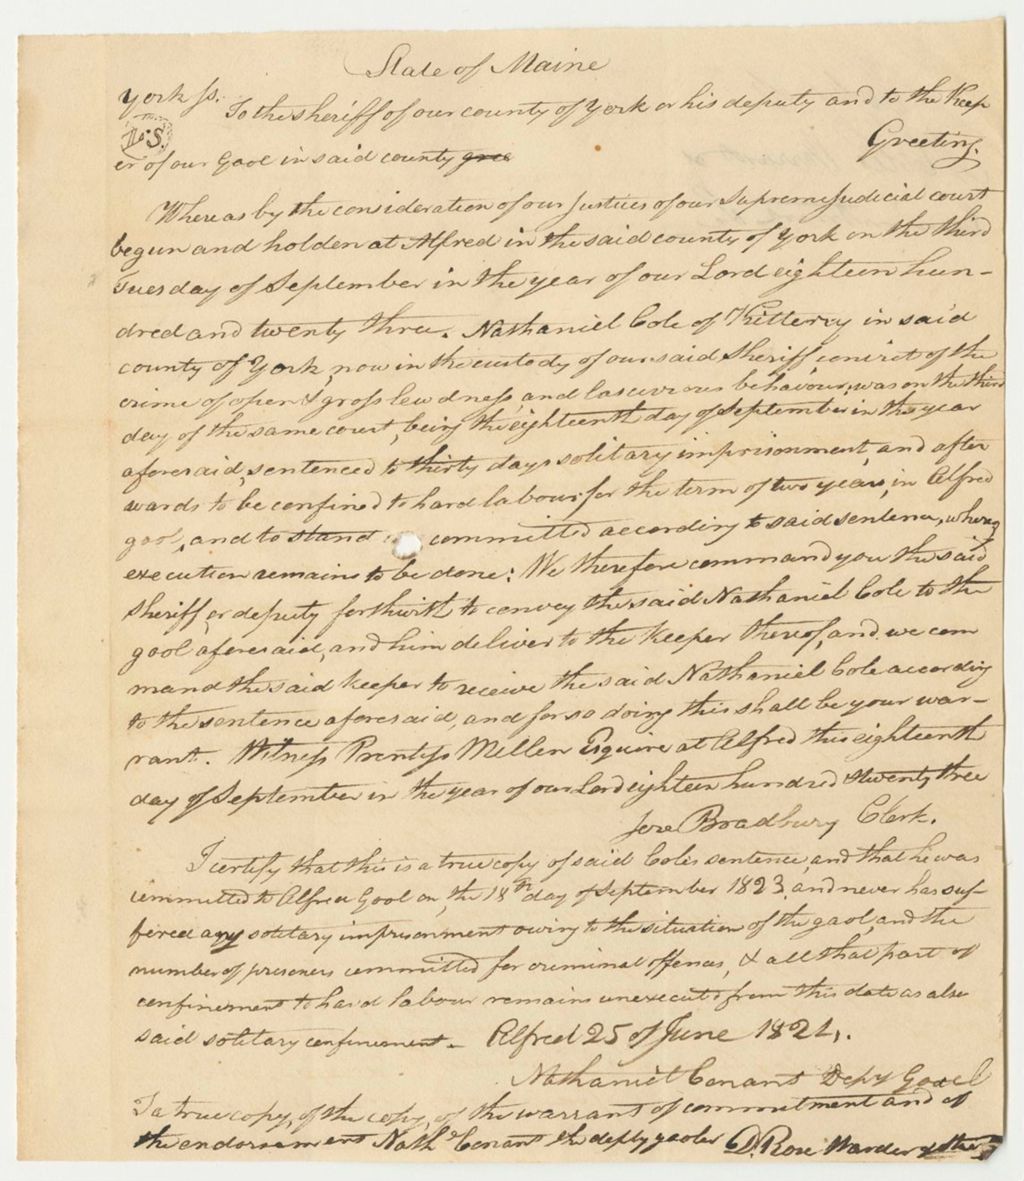 State of Maine
York ss.
To the sheriff of our county of York or his deputy and to the Keep
L.S.
Greeting.
er of our Gaol in said county gree
Whereas by the consideration of our Justices of our Supreme Judicial court
begun and holden at Alfred in the said county of York on the third
Tuesday of September in the year of our Lord eighteen hun-
dred and twenty three. Nathaniel Cole of Kittery in said
county of York, now in the custody of our said Sheriff, convict of the
crime of open & gross lewdness, and lascivious behaviour, was on the third
day of the same court, being the eighteenth day of September in the year
aforesaid, sentenced to thirty days solitary imprisonment, and after
wards to be confined to hard labour for the term of two years, in Alfred
gaol, and to stand committed according to said sentence, whereof
execution remains to be done: We therefore command you the said
Sheriff, or deputy forthwith to convey the said Nathaniel Cole to the
gaol aforesaid, and him deliver to the keeper thereof, and we com
mand the said keeper to receive the said Nathaniel Cole according
to the sentence aforesaid, and for so doing this shall be your war-
rant. Witness Prentiss Mellen Esquire at Alfred this eighteenth
day of September in the year of our Lord eighteen hundred & twenty three
Jere Bradbury Clerk.
I certify that this is a true copy of said Coles sentence, and that he was
committed to Alfred Gaol on the 18th day of September 1823, and never has suf-
fered any solitary imprisonment owing to the situation of the gaol, and the
number of prisoners committed for criminal offences, & all that part of
confinement to hard labour remains unexecuted from this date as also
said solitary confinement. Alfred 25 of June 1824.
Nathaniel Conant Depy Goael
I a true copy, of the copy, of the warrant of commitment and of
the endorsement Nathl Conant the depty gaoler D. Rose Warden